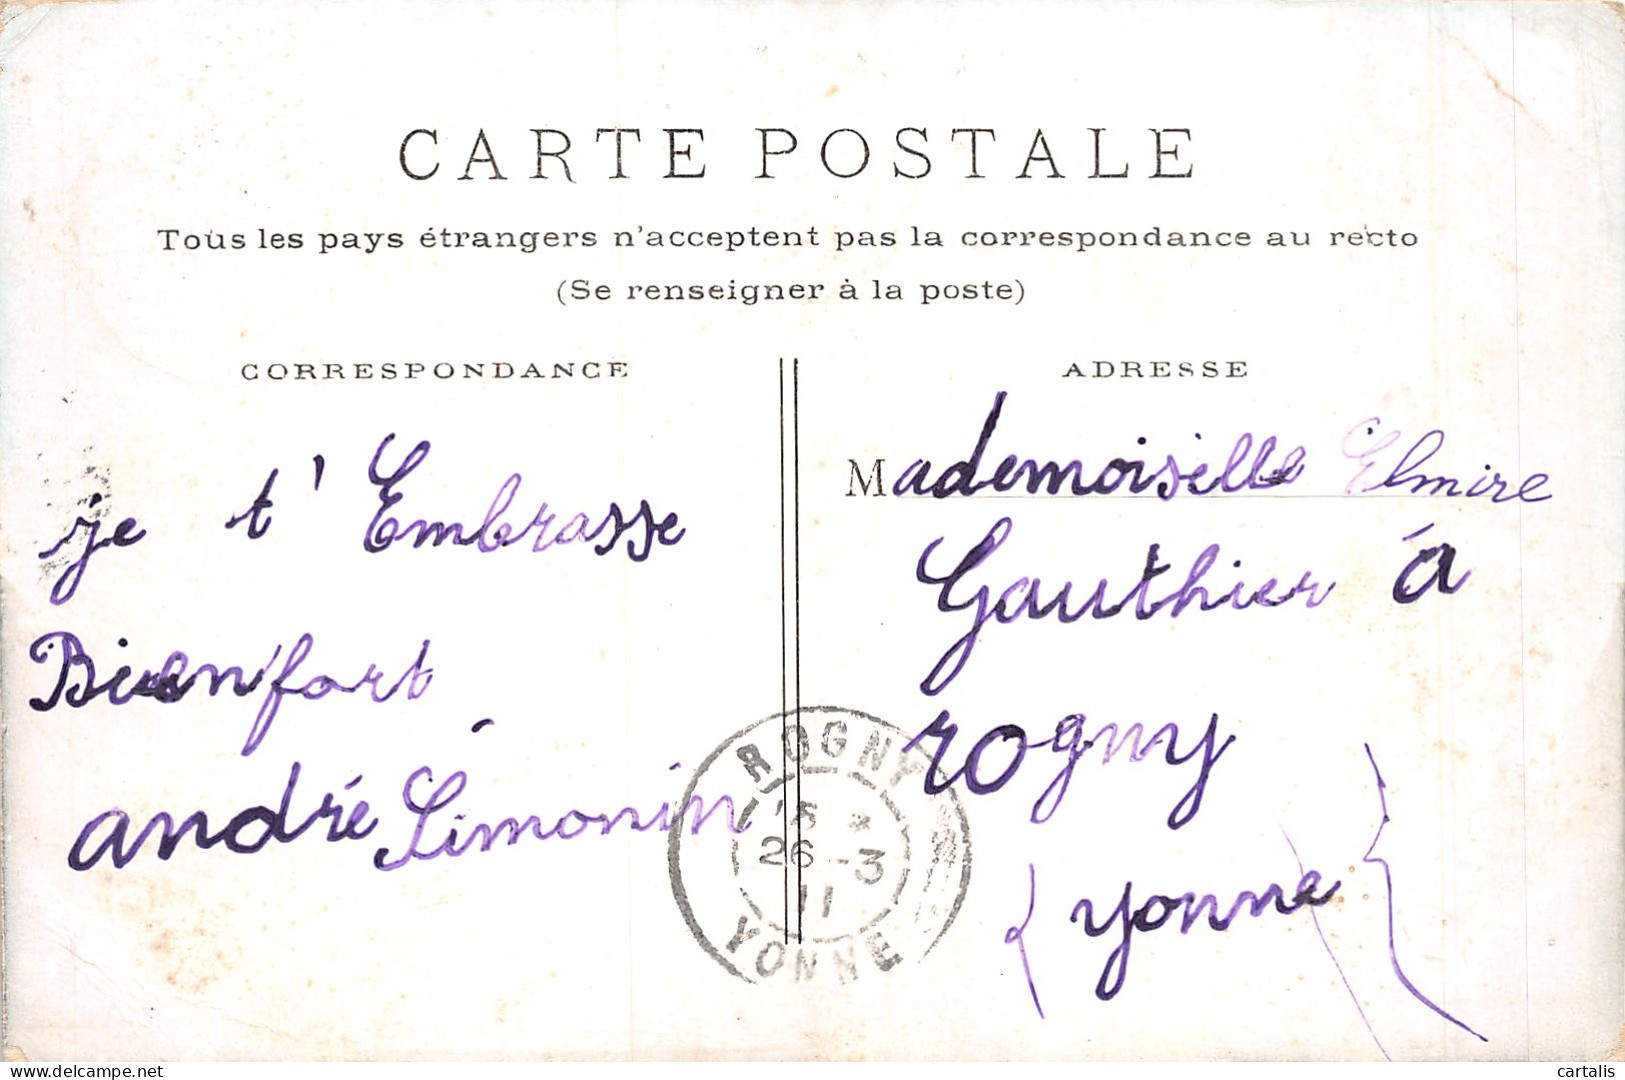 CARTE POSTALE
Tous les pays étrangers n'acceptent pas la correspondance au recto
(Se renseigner à la poste)
CORRESPONDANCE
je t'Embrasse
Bien fort
andré Simonin
ADRESSE
Mademoiselle Elmire
Gauthier à
rogny
(yonne)
ROGNY
26 -3
11
YONNE
delcampe.net
cartalis